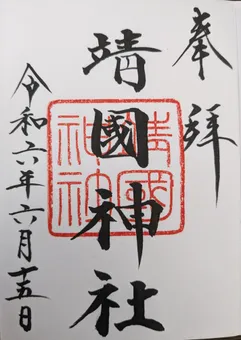 奉拝
靖國神社
靖國神社
令和六年六月十五日